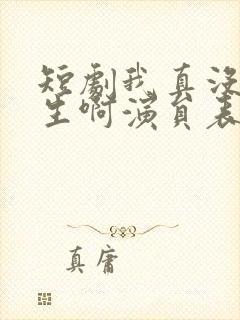 短劇我真没
生啊演員表
真庸